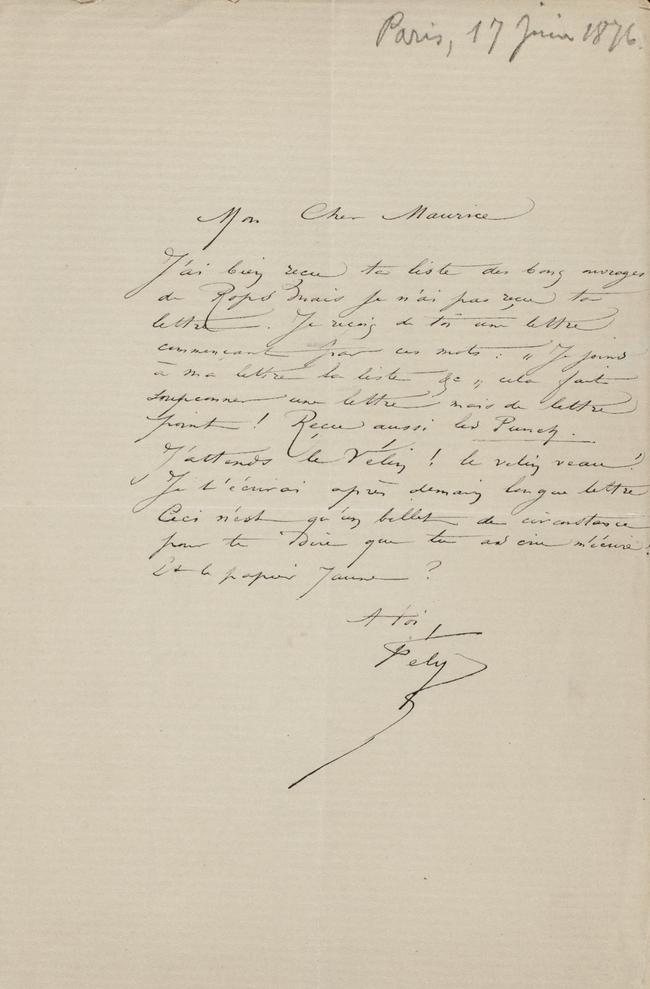 Paris, 17 juin 1876.
Mon Cher Maurice
J'ai bien reçu ta liste des bons ouvrages
de Rops mais je n'ai pas reçu ta
lettre. Je reçois de toi une lettre
commençant par ces mots : „ Je joins
à ma lettre la liste &c „ cela fait
soupçonner une lettre mais de lettre
point ! Reçu aussi les Punch.
J'attends le Vélin ! le velin veau !
Je t'écrirai après demain longue lettre
Ceci n'est qu'un billet de circonstance
pour te dire que tu as cru m'écrire !
Et le papier Jaune ?
A toi
Fély